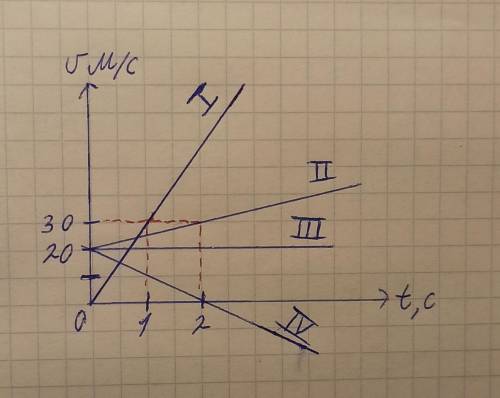 υ м/с
I
II
30
III
20
0
1
2
IV
t, с